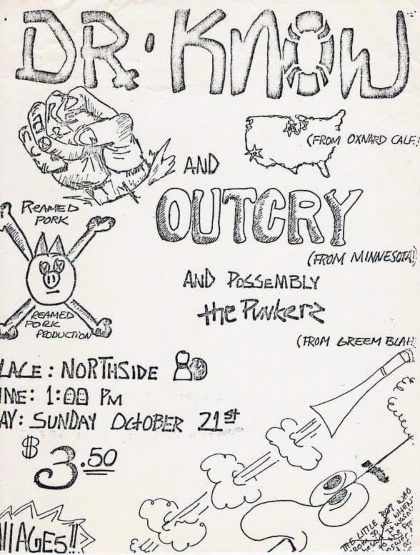 DR. KNOW
(FROM OXNARD CALF.)
AND
OUTCRY
(FROM MINNESOTA)
REAMED
PORK
REAMED
PORK
PRODUCTION
AND POSSEMBLY
the Punkerz
(FROM GREEM BLAH
LACE: NORTHSIDE
INE: 1:00 PM
AY: SUNDAY OCTOBER 21st
$3.50
ALL AGES!!
THE LITTLE BOY WHO